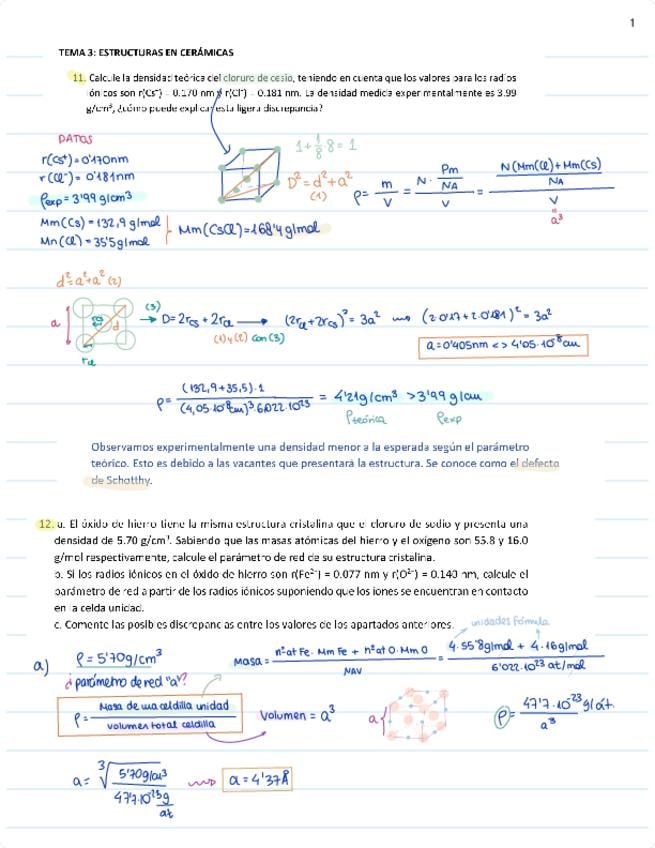 1
TEMA 3: ESTRUCTURAS EN CERÁMICAS
11. Calcule la densidad teórica del cloruro de cesio, teniendo en cuenta que los valores para los radios
iónicos son r(Cs⁺) = 0.170 nm y r(Cl⁻) = 0.181 nm. La densidad medida experimentalmente es 3.99
g/cm³, ¿cómo puede explicar esta ligera discrepancia?
DATOS
r(Cs⁺) = 0'170nm
r(Cl⁻) = 0'181nm
ρexp = 3'99 g/cm³
Mm(Cs) = 132,9 g/mol
Mm(Cl) = 35'5 g/mol
Mm(CsCl) = 168'4 g/mol
1 + 1/8 · 8 = 1
D² = d² + a²
(1)
ρ = m/V = N · Pm/NA / V = N(Mm(Cl) + Mm(Cs))/NA / V
a³
d² = a² + a² (2)
a
d
rCl
(3)
→ D = 2rCs + 2rCl → (2rCl + 2rCs)² = 3a² ⇝ (2·0'17 + 2·0'181)² = 3a²
(1) y (2) con (3)
a = 0'405nm <> 4'05·10⁻⁸cm
ρ = (132,9 + 35,5)·1 / (4,05·10⁻⁸cm)³·6.022·10²³ = 4'21g/cm³ > 3'99 g/cm
ρteórica ρexp
Observamos experimentalmente una densidad menor a la esperada según el parámetro
teórico. Esto es debido a las vacantes que presentará la estructura. Se conoce como el defecto
de Schotthy.
12. a. El óxido de hierro tiene la misma estructura cristalina que el cloruro de sodio y presenta una
densidad de 5.70 g/cm³. Sabiendo que las masas atómicas del hierro y el oxígeno son 55.8 y 16.0
g/mol respectivamente, calcule el parámetro de red de su estructura cristalina.
b. Si los radios iónicos en el óxido de hierro son r(Fe²⁺) = 0.077 nm y r(O²⁻) = 0.140 nm, calcule el
parámetro de red a partir de los radios iónicos suponiendo que los iones se encuentran en contacto
en la celda unidad.
c. Comente las posibles discrepancias entre los valores de los apartados anteriores.
unidades fórmula
a)
ρ = 5'70g/cm³
¿parámetro de red "a"?
Masa = nºat Fe · Mm Fe + nºat O · Mm O / NAV = 4·55'8g/mol + 4·16g/mol / 6'022·10²³ at/mol
ρ = Masa de una celdilla unidad / volumen total celdilla
Volumen = a³
a
ρ = 47'7·10⁻²³ g/at. / a³
a = ∛ 5'70g/cm³ / 47'7·10⁻²³ g/at
⇝ a = 4'37Å